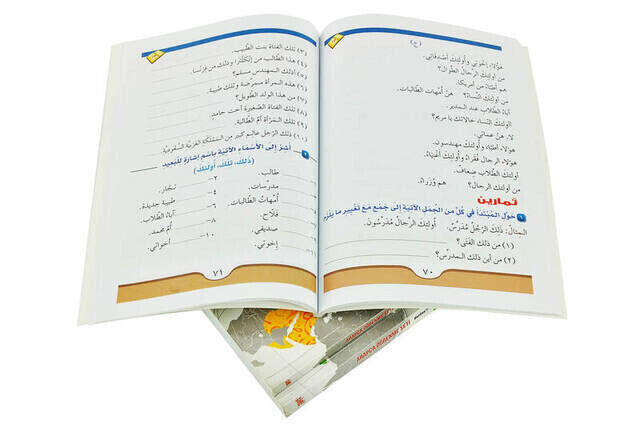 (ج)
هؤلاء إخوتي وأولئك أصدقائي.
من أولئك الرجال الطوال؟
هم أطباء من أمريكا.
من أولئك النساء؟ هن أمهات الطالبات.
آباء الطلاب عند المدير.
أأولئك النساء خالاتك يا مريم؟
لا هن عماتي.
هؤلاء أطباء وأولئك مهندسون.
هؤلاء الرجال فقراء وأولئك أغنياء.
أولئك الطلاب ضعاف.
من أولئك الرجال؟ هم وزراء.
تمارين
١ حول المبتدأ في كل من الجمل الآتية إلى جمع مع تغيير ما يلزم
المثال: ذلك الرجل مدرس. أولئك الرجال مدرسون.
(١) من ذلك الفتى؟
(٢) من أين ذلك المدرس؟
٧٠
(٣) تلك الفتاة بنت الطبيب.
(٤) هذا الطالب من إنكلترا وذلك من فرنسا.
(٥) أذلك المهندس مسلم؟
(٦) هذه المرأة ممرضة وتلك طبيبة.
(٧) من هذا الولد الطويل؟
(٨) تلك الفتاة الصغيرة أخت حامد.
(٩) تلك المرأة أم الطالب.
(١٠) ذلك الرجل عالم كبير من المملكة العربية السعودية.
٢ أشر إلى الأسماء الآتية باسم إشارة للبعيد
(ذلك، تلك، أولئك)
١- طالب.
٢- نجار.
٣- مدرسات.
٤- طبيبة جديدة.
٥- أمهات الطالبات.
٦- آباء الطلاب.
٧- فلاح.
٨- أم محمد.
٩- صديقي.
١٠- أخواتي.
١١- إخوتي.
٧١